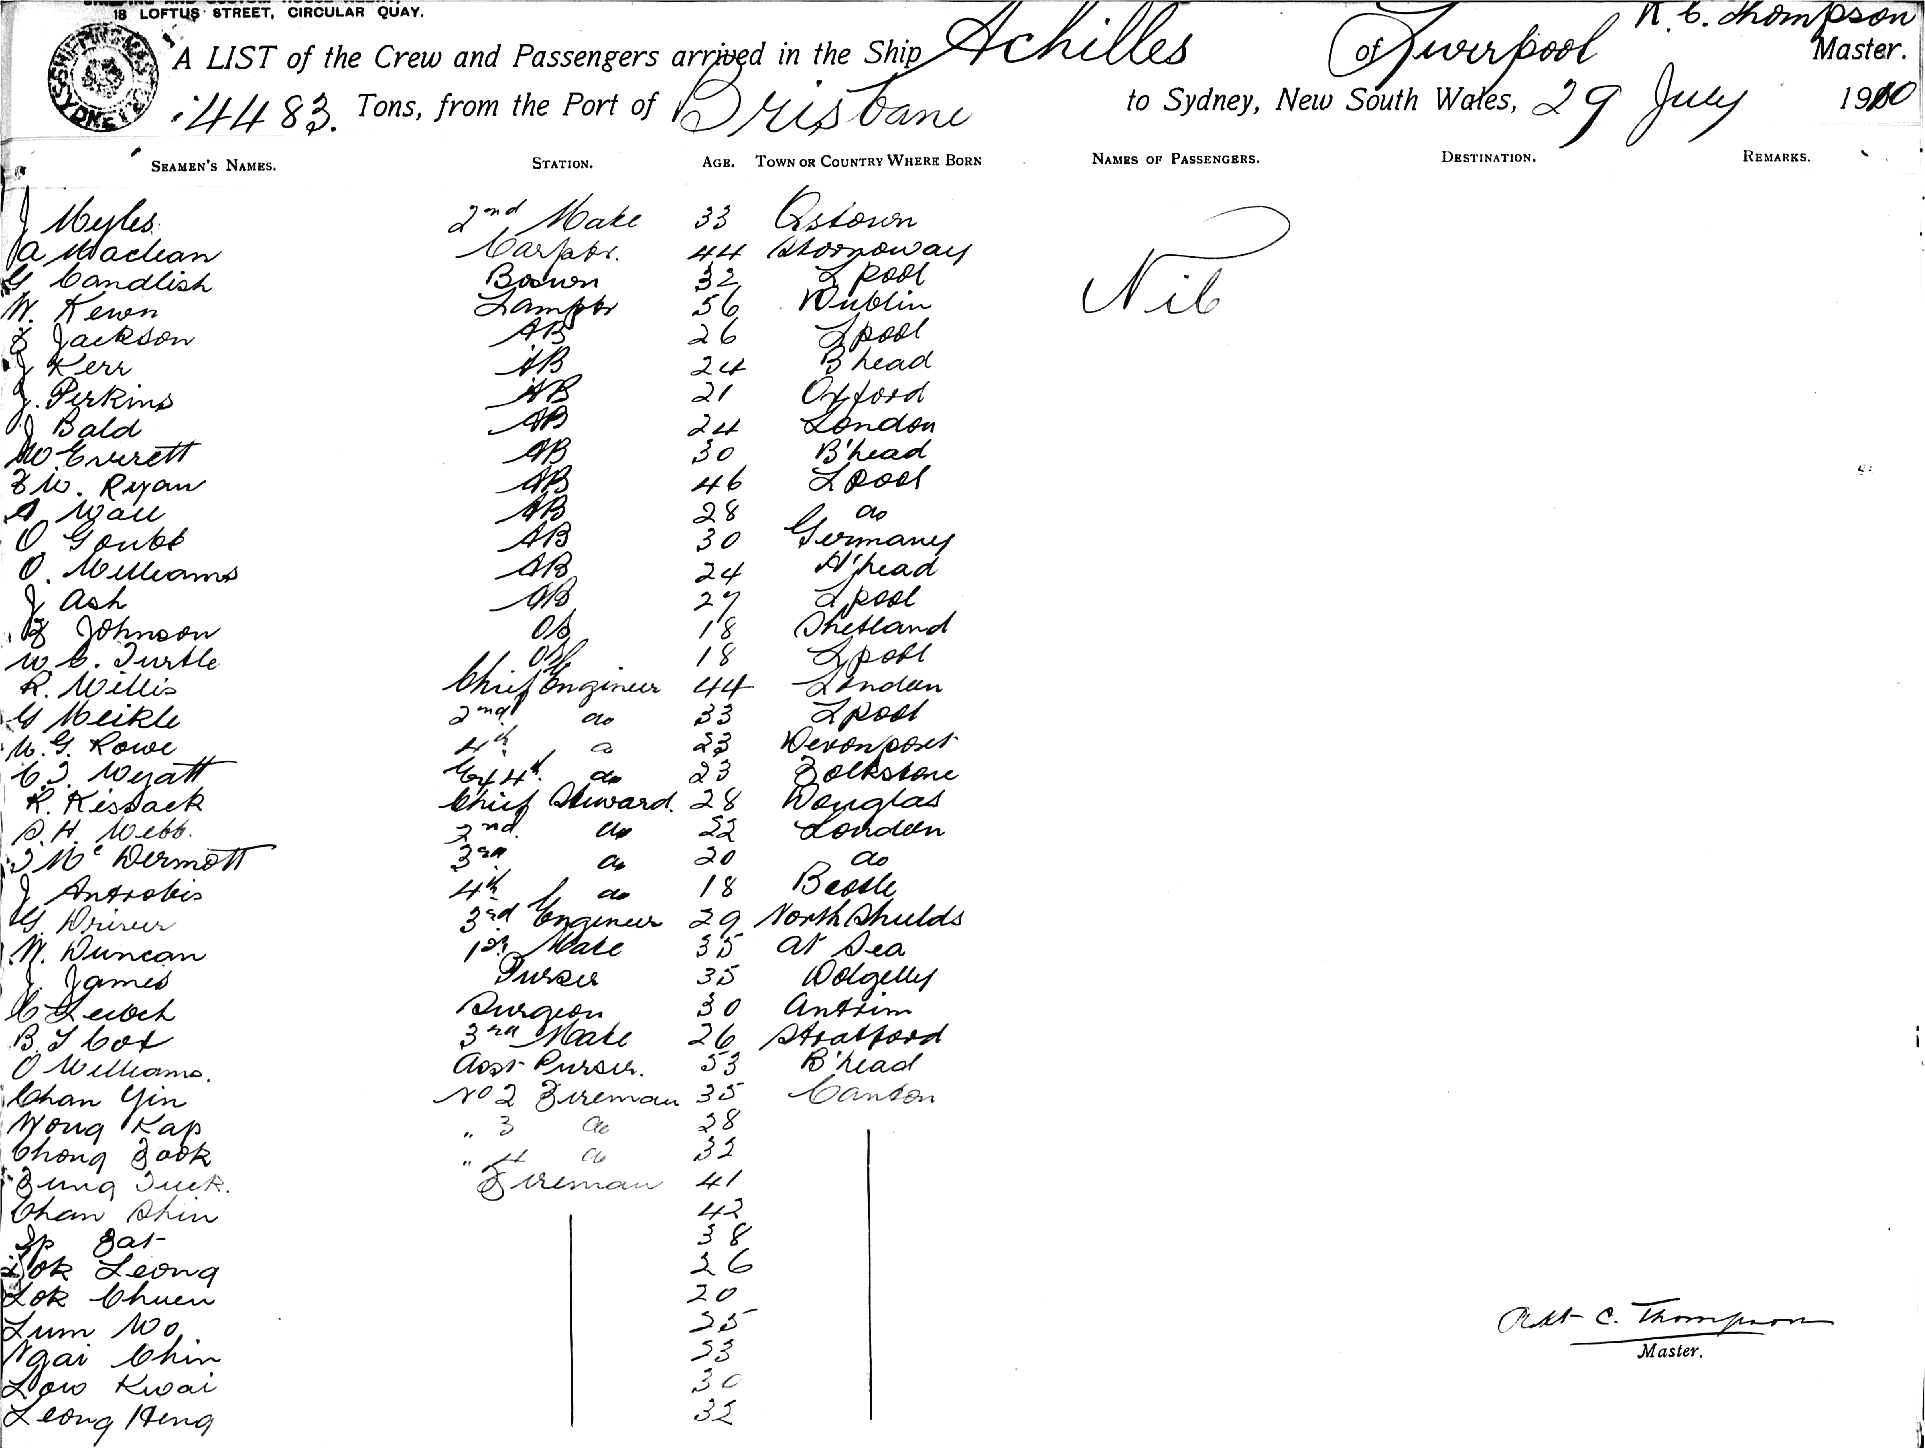 18 LOFTUS STREET, CIRCULAR QUAY.
A LIST of the Crew and Passengers arrived in the Ship Achilles of Liverpool R. C. Thompson Master.
4483. Tons, from the Port of Brisbane to Sydney, New South Wales, 29 July 1910
SEAMEN'S NAMES. STATION. AGE. TOWN OR COUNTRY WHERE BORN NAMES OF PASSENGERS. DESTINATION. REMARKS.
J Myles 2nd Mate 33 Qstown
A Maclean Carptr. 44 Stornoway
G Candlish Bosun 32 Lpool Nil
W. Kewn Lamptr 56 Dublin
F Jackson AB 26 Lpool
J Kerr AB 24 B'head
J. Perkins AB 21 Oxford
J Bald AB 24 London
W Everett AB 30 B'head
F W. Ryan AB 46 Lpool
A Wall AB 28 do
O AB 30 Germany
O. Williams AB 24 H'head
J Ash AB 27 Lpool
F Johnson OS 18 Shetland
W C. Turtle OS 18 Lpool
R. Willis Chief Engineer 44 London
G Meikle 2nd do 33 Lpool
W. G. Rowe 4th do 23 Devonport
C. J. Wyatt Ex 4th. do 23 Folkstone
R. Kissack Chief Steward. 28 Douglas
S. H. Webb. 2nd. do 22 London
J McDermott 3rd do 20 do
J Antrobis 4th do 18 Bootle
G. Driver 3rd Engineer 29 North Shields
W. Duncan 1st Mate 35 At Sea
J. James Purser 35 Dolgelly
C Leech Surgeon 30 Antrim
B. T Cox 3rd Mate 26 Stratford
O Williams. Asst Purser. 53 B'head
Chan Yin No 2 Fireman 35 Canton
Wong Kap " 3 do 28
Chong Fook " 4 do 32
Fung Tuck. Fireman 41
Chan Shin 42
Ip Fat 38
Leong 26
Lok Chuen 20
Lum Wo 25
Ngai Chin 23
Low Kwai 30
Leong Heng 32
Robt C. Thompson
Master.